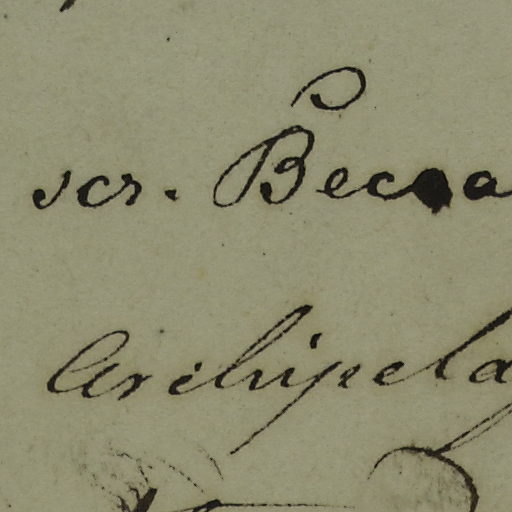 scr. Becca
Archipela